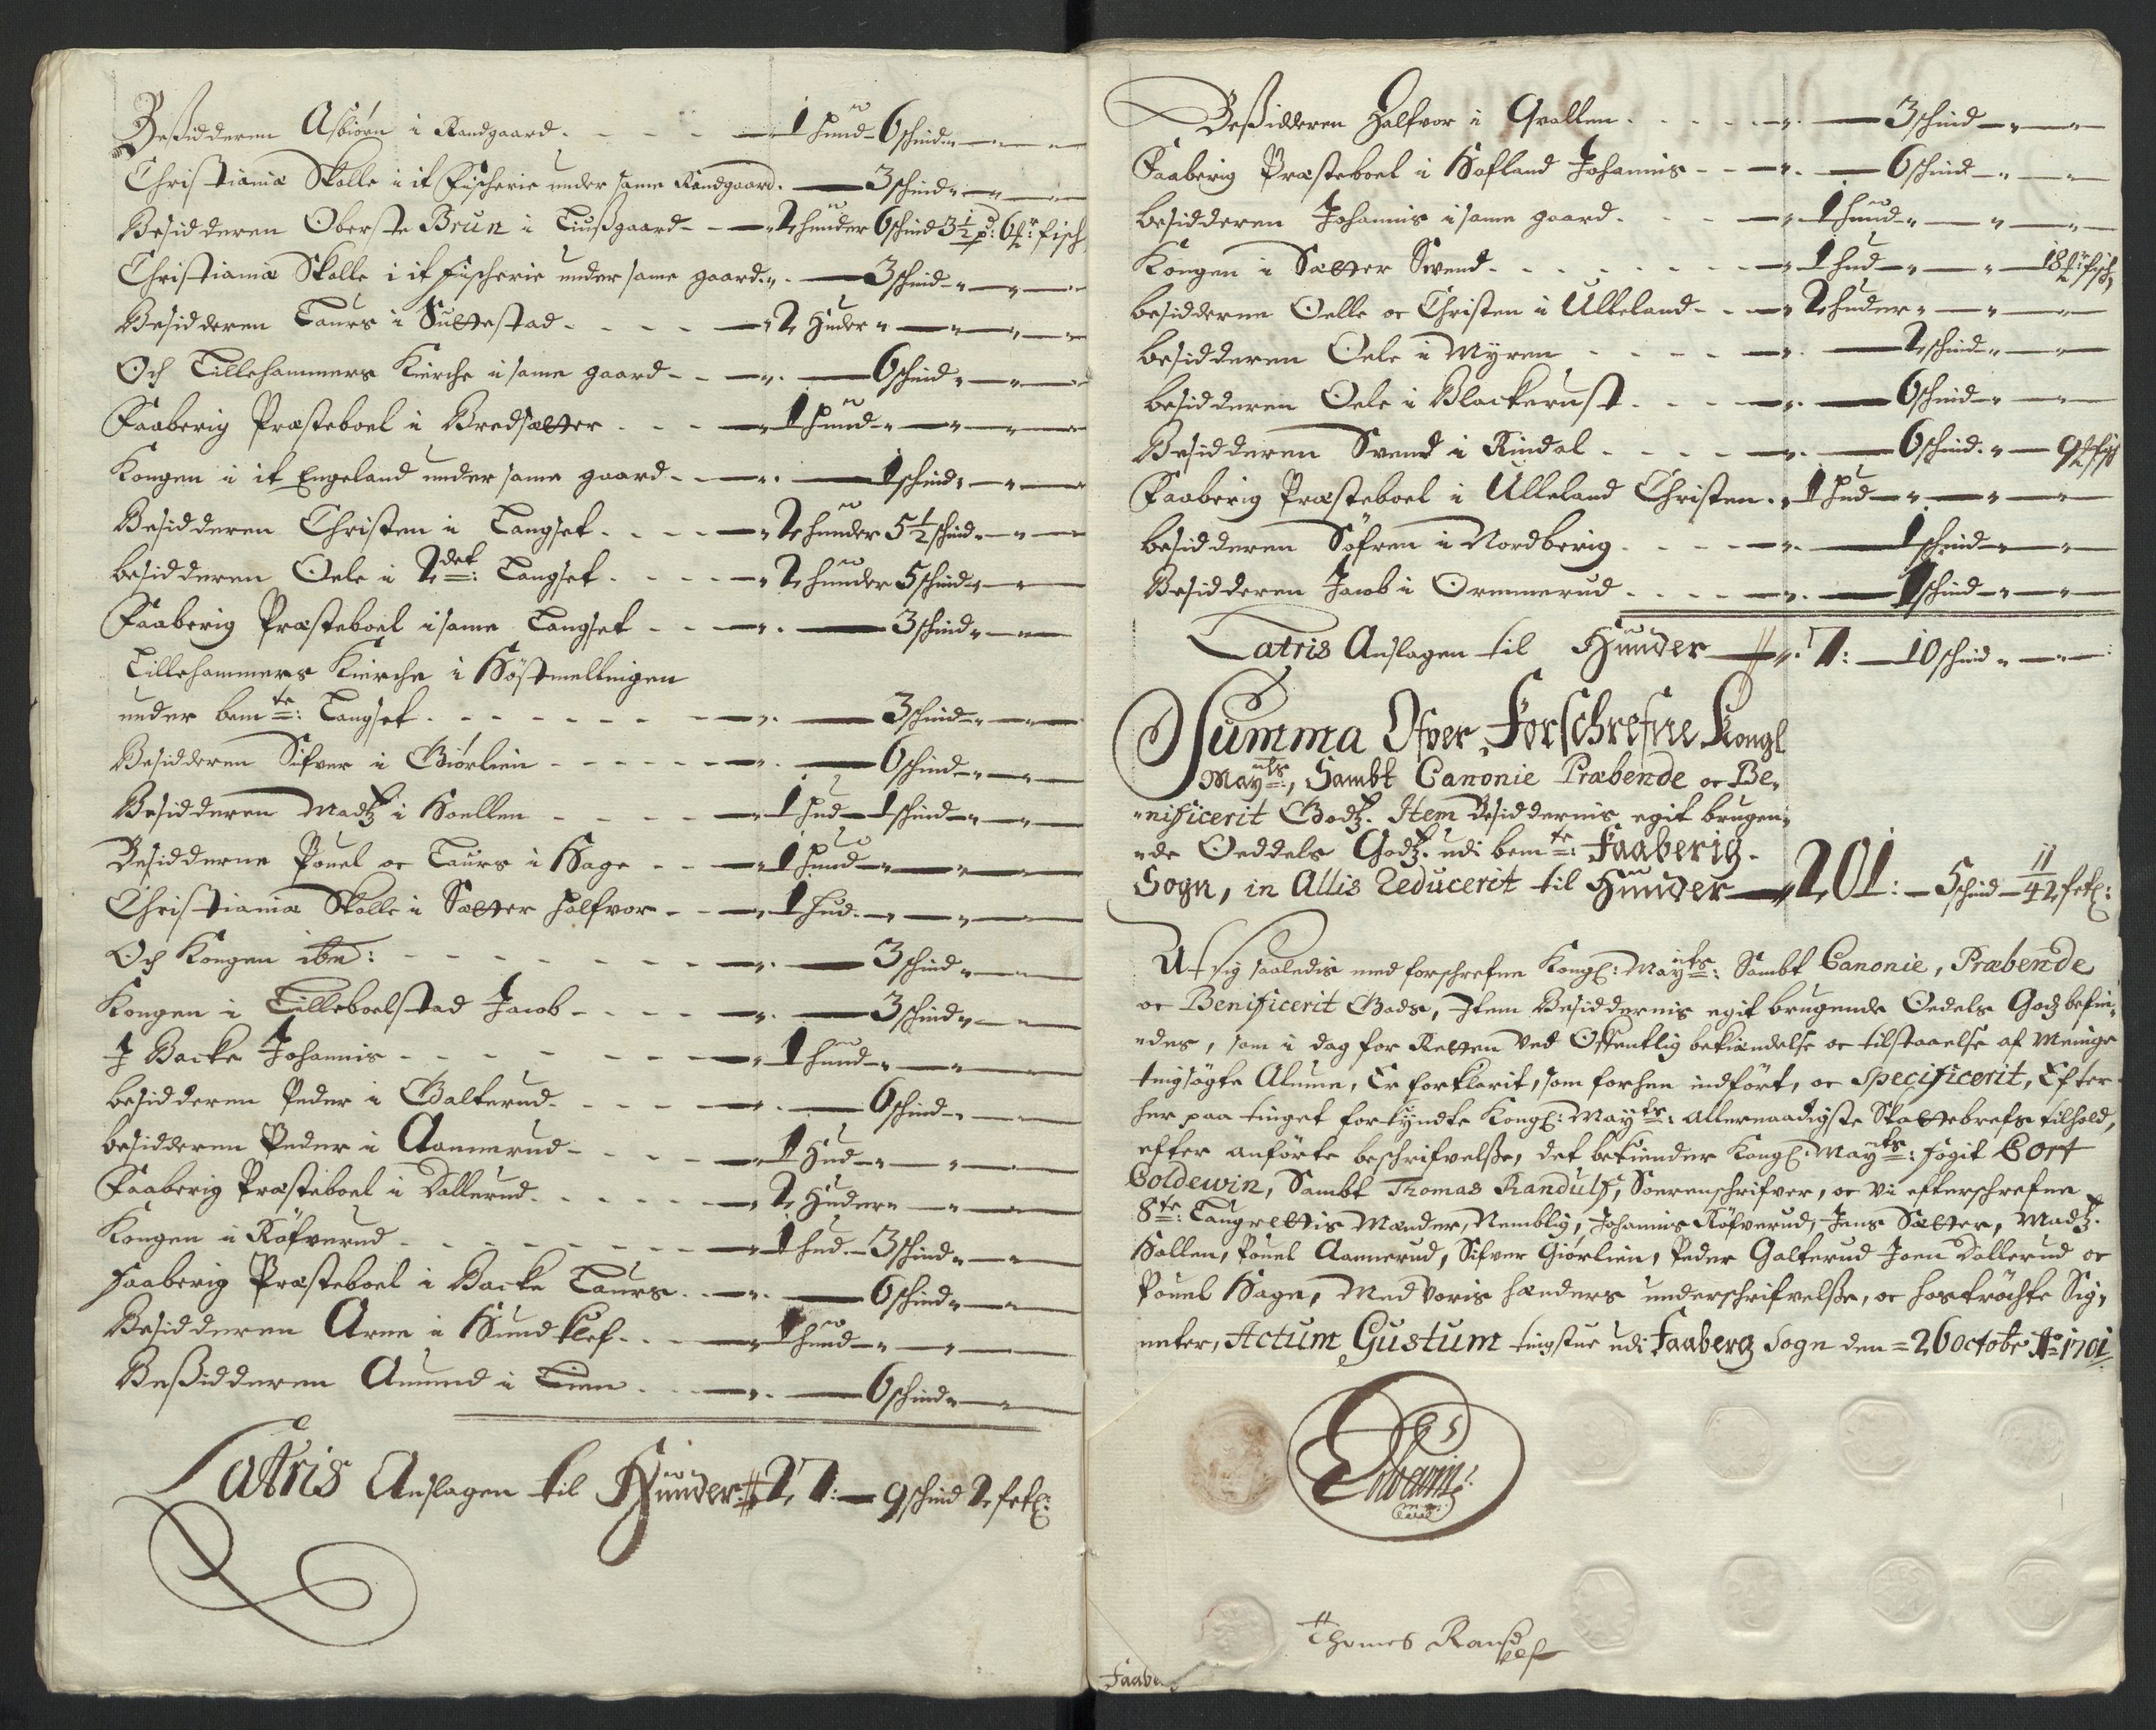 Beßidderen Asbiörn i Randgaard - - - - 1 hund 6 schind
Christiania Skolle i it Fischerie under same Randgaard. 3 schind
Besidderen Oberste Brun i Liußgaard - - 2 hunder 6 schind 3½ pd: 6 fisch
Christiania Skolle i it fischerie under same gaard. 3 schind
Besidderen Laurs i Suttestad - - - - 2 Huder
Och Lillehammers Kierche i same gaard - - 6 schind
Faaberig Præsteboel i Bredsætter - - - 1 hund
Kongen i it Engeland under same gaard - - 1 schind
Besidderen Christen i Langset - - - 2 hunder 5½ schind
besidderen Oele i 2det: Langset - - - 2 hunder 5 schind
Faaberig Præsteboel i same Langset - - 3 schind
Lillehammers Kierche i Höstmellingen
under bemte: Langset - - - - - 3 schind
Besidderen Sifver i Giörlien - - - - - 6 schind
Besidderen Madtz i Hoellen - - - - 1 hud 1 schind
Besidderne Pouel oc Laurs i Hage - - 1 hund
Christiania Skolle i Sætter Halfvor - - 1 hud
Och Kongen ibm: - - - - - - 3 schind
Kongen i Lilleboelstad Jacob - - - - 3 schind
I Backe Johannis - - - - - - 1 hund
besidderen Peder i Galterud - - - - 6 schind
besidderen Peder i Aannerud - - - - 1 Hud
Faaberig Præsteboel i Dallerud - - - - 2 Huder
Kongen i Röfverud - - - - - - 1 hud 3 schind
Faaberig Præsteboel i Backe Laurs - - 6 schind
Besidderen Arne i Hundklef - - - 1 hund
Beßidderen Amund i Lien - - - 6 schind
Latris Anslagen til Hunder: 27: 9 schind 2 fetl:
Beßidderen Halfvor i Qvallen - - - - 3 schind
Faaberig Præsteboel i Hafland Johannis - - 6 schind
besidderen Johannis i same gaard - - - 1 hund
Kongen i Sætter Svend - - - - - 1 hud 18 fisch
besidderne Oelle oc Christen i Ulleland - - 2 huder
besidderen Oele i Myren - - - - 2 schind
besidderen Oele i Blackerust - - - - 6 schind
Besidderen Svend i Rindal - - - - 6 schind 9 fisch
Faaberig Præsteboel i Ulleland Christen. 1 hud
besidderen Söfren i Nordberig - - - - 1 schind
Besidderen Jacob i Ormmerud - - - - 1 schind
Latris Anslagen til Hunder 7: 10 schind
Summa Ofver Forschrefne Kongl
Mayts:, Sambt Canonie Præbende oc Be-
nificerit Godtz. Item Besiddernis egit brugen-
de Oeddels Godtz. udi bemte: Faaberig
Sogn, in Allis Reducerit til Hunder 201: 5 schind 11/42 fetl:
At sig saaledis med forschrefne Kongl: Mayts: Sambt Canonie, Præbende
oc Benificerit Gods, Item Besiddernis egit brugende Oedels Godz befin-
des, som i dag for Retten ved Offentlig bekiendelse oc tilstaaelse af Menige
tingsögte Almue, Er forklarit, som forhen indført, oc Specificerit, Efter
her paa tinget forkyndte Kongl: Mayts: allernaadigste Skattebrefs tilhold,
efter anförte beschrifvelße, det bekiender Kongl: Mayts: fogit Cort
Coldewin, Sambt Thomas Randulf, Sorenschrifver, oc vi efterschrefne
8te: Laugrettis Mænder, Nemblig, Johannis Röfverud, Jens Sætter, Madtz
Hallen, Pouel Aannerud, Sifver Giörlien, Peder Galterud Joen Dallerud oc
Pouel Hage, Med voris hænders underschrifvelße, oc hoströchte Sig-
neter, Actum Gustum tingstue udi Faaberg Sogn den = 26 octobr Ao 1701
Thomes Randulf
Faabe